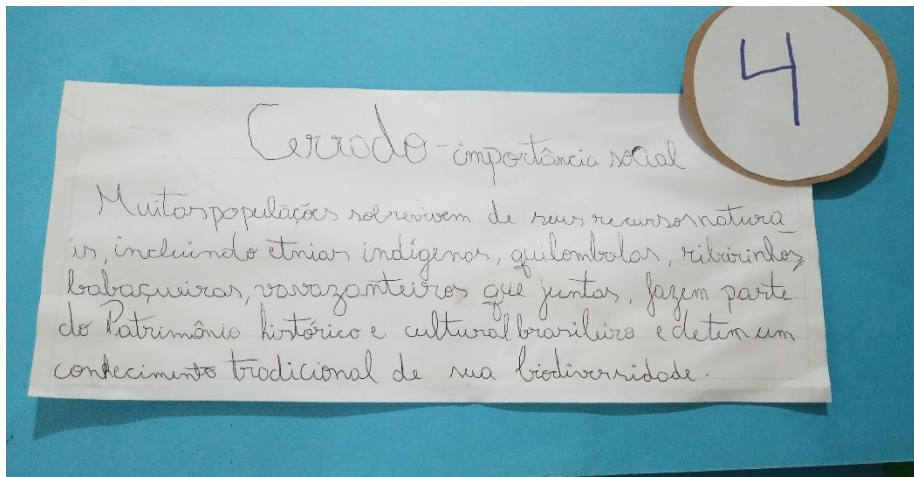 4
Cerrado - importância social
Muitas populações sobrevivem de seus recursos natura_
is, incluindo etnias indígenas, quilombolas, ribirinhos,
babaçueiras, vavazanteiros que juntas, fazem parte
do Patrimônio histórico e cultural brasileiro e detem um
conhecimento tradicional de sua biodiversidade.